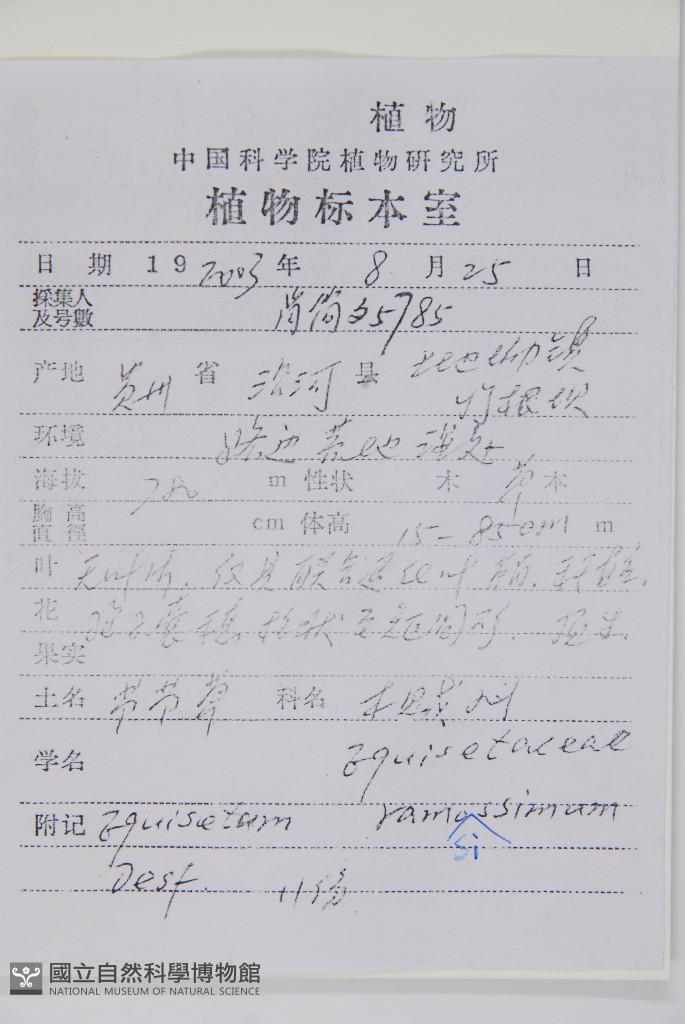 植物
中国科学院植物研究所
植物标本室
日 期 19 2003 年 8 月 25 日
採集人
及号數 简 5785
产地 贵州 省 沿河 县 镇
竹根坝
环境 路边 荒地
海拔 m 性状 木 草本
胸高
直徑 cm 体高 15-85cm m
叶 无叶片. 仅具联合 叶鞘.
花 孢子囊穗 状至 形. 顶生.
果实
土名 节节草 科名 木贼科
学名 Equisetaceae
附记 Equisetum ramossimum
si
Desf. 11份
國立自然科學博物館
NATIONAL MUSEUM OF NATURAL SCIENCE